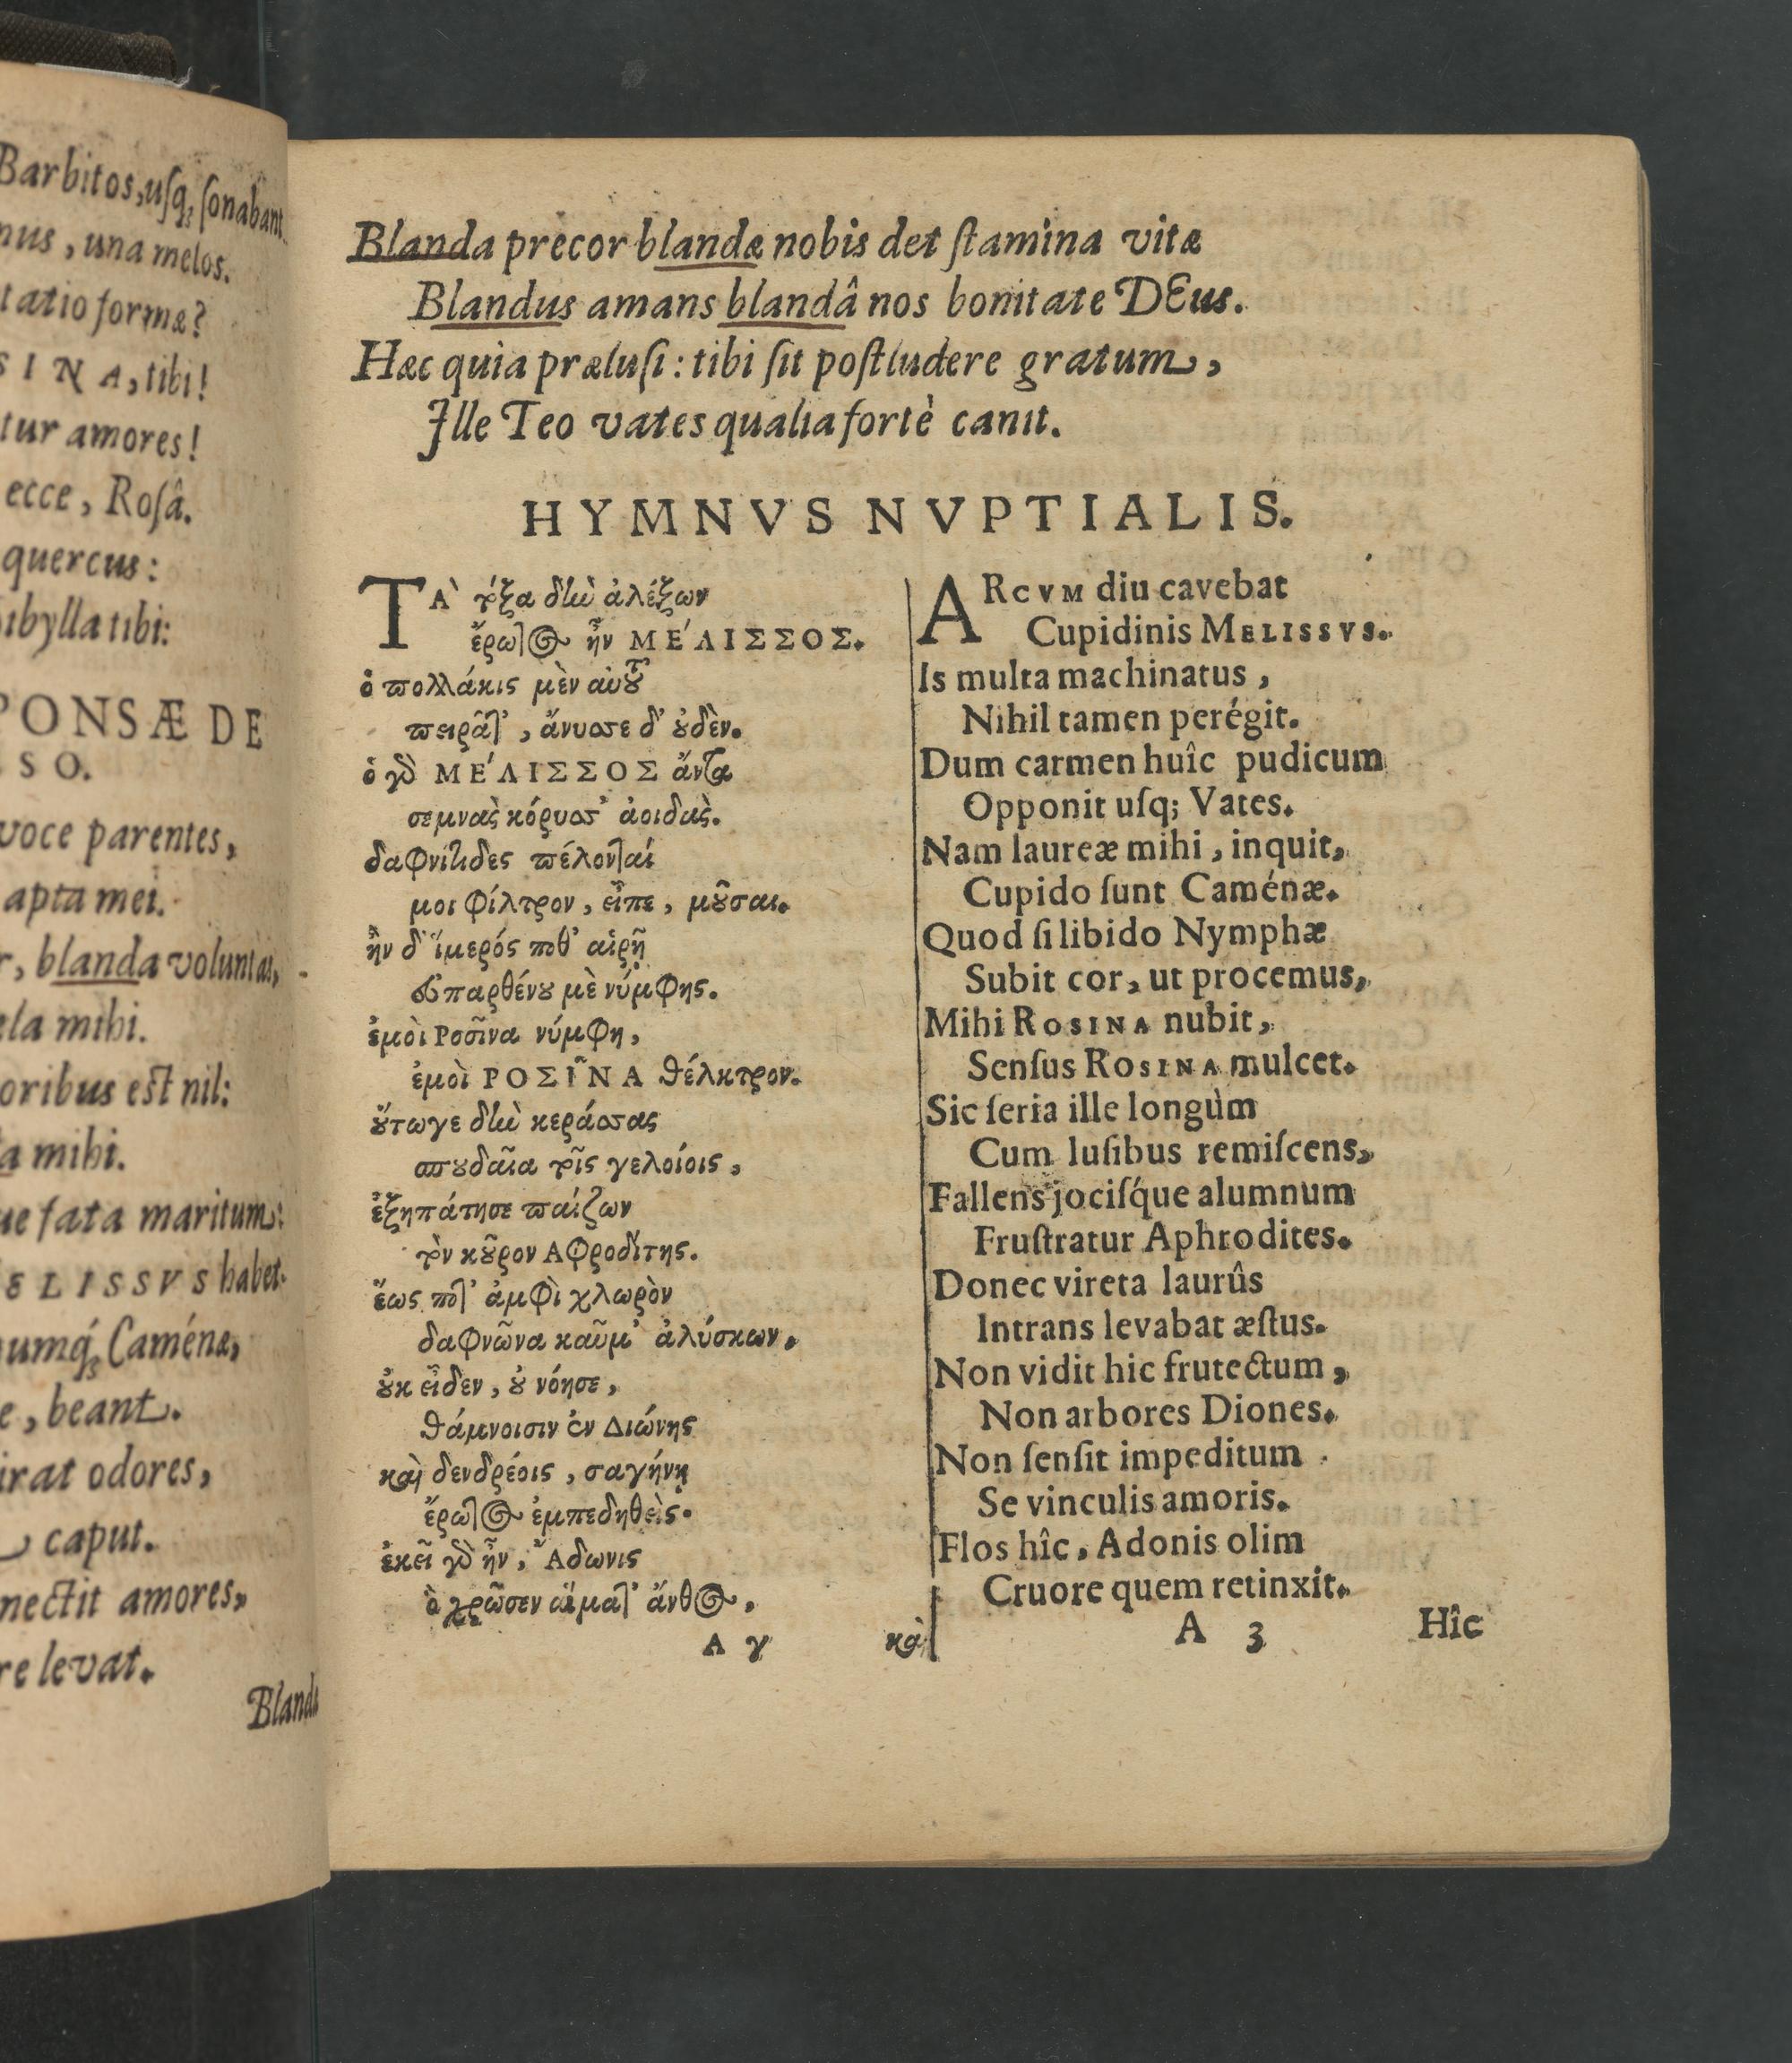 Barbitos, uſq; ſonabant
nus, una melos.
tatio formæ?
SINA, tibi!
tur amores!
ecce, Roſâ.
quercus:
ibylla tibi:
PONSÆ DE
SO.
voce parentes,
apta mei.
r, blanda voluntas,
ela mihi.
oribus eſt nil:
ta mihi.
ue fata maritum:
ELISSVS habet.
umq́; Caménæ,
e, beant.
irat odores,
caput.
nectit amores,
re levat.
Blanda
Blanda precor blandæ nobis det ſtamina vitæ
Blandus amans blandâ nos bonitate DEus.
Hæc quia præluſi: tibi ſit poſtludere gratum,
Ille Teo vates qualia fortè canit.
HYMNVS NVPTIALIS.
ΤᾺ τόξα δὴν ἀλέξων
ἔρωτος ἦν ΜΈΛΙΣΣΟΣ.
ὁ πολλάκις μὲν αὐτοῦ
πειρᾶτ', ἄνυσσε δ' οὐδὲν.
ὁ γὸ ΜΈΛΙΣΣΟΣ ἄντα
σεμνὰς κόρυσσ' ἀοιδὰς.
δαφνίτιδες πέλονταί
μοι φίλτρον, εἶπε, μοῦσαι.
ἢν δ' ἵμερός ποθ' αἱρῇ
παρθένου μὲ νύμφης.
ἐμοὶ Ροσῖνα νύμφη,
ἐμοὶ ΡΟΣΙ͂ΝΑ θέλκτρον.
οὕτωγε δὴν κεράσσας
σπουδαῖα τοῖς γελοίοις,
ἐξηπάτησε παίζων
τὸν κοῦρον Αφροδίτης.
ἕως ποτ' ἀμφὶ χλωρὸν
δαφνῶνα καῦμ' ἀλύσκων,
οὐκ εἶδεν, οὐ νόησε,
θάμνοισιν ἐν Διώνης
καὶ δενδρέοις, σαγήνῃ
ἔρωτος ἐμπεδηθεὶς.
ἐκεῖ γὸ ἦν, Ἄδωνις
ὃ χρῶσεν αἵματ' ἄνθος,
Α γ καὶ
ARCVM diu cavebat
Cupidinis MELISSVS.
Is multa machinatus,
Nihil tamen perégit.
Dum carmen huîc pudicum
Opponit uſq; Vates.
Nam laureæ mihi, inquit,
Cupido ſunt Caménæ.
Quod ſi libido Nymphæ
Subit cor, ut procemus,
Mihi ROSINA nubit,
Senſus ROSINA mulcet.
Sic ſeria ille longùm
Cum luſibus remiſcens,
Fallens jociſq́ue alumnum
Fruſtratur Aphrodites.
Donec vireta laurûs
Intrans levabat æſtus.
Non vidit hic frutectum,
Non arbores Diones.
Non ſenſit impeditum
Se vinculis amoris.
Flos hîc, Adonis olim
Cruore quem retinxit.
A 3 Hîc